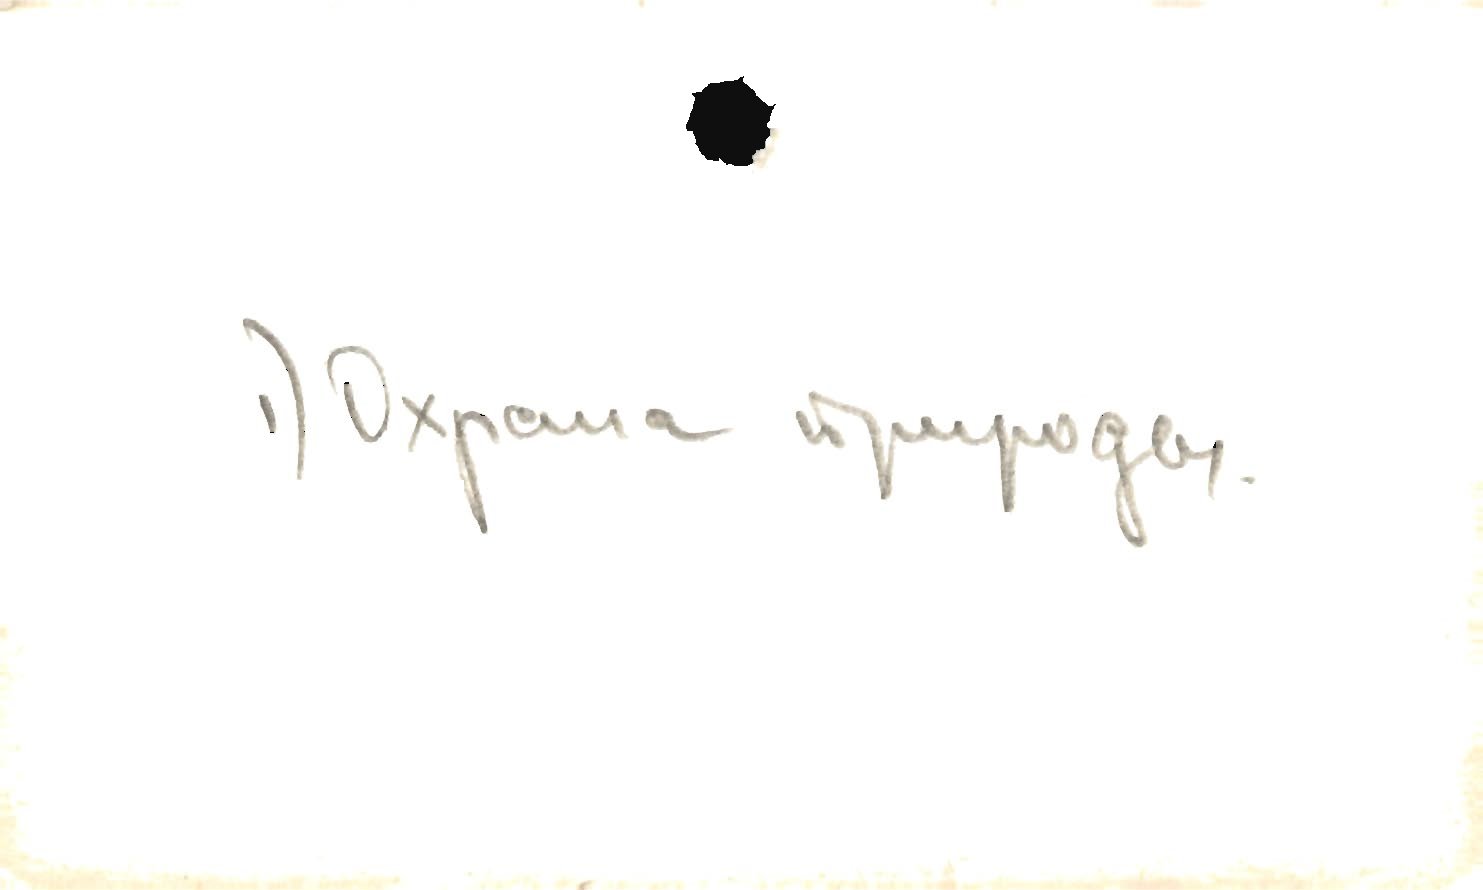 1) Охрана природы.